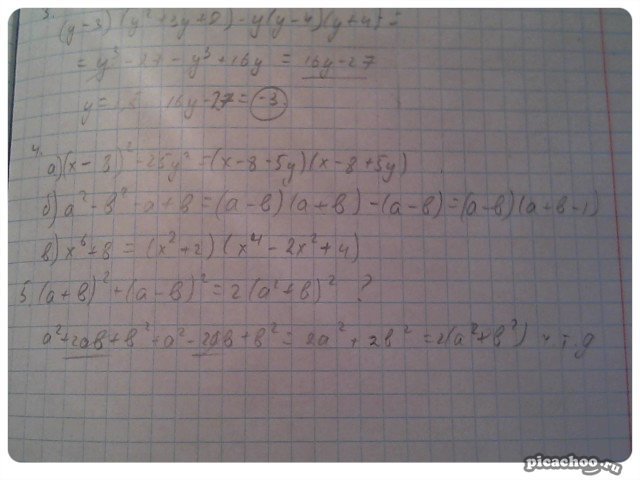 3. (y-3)(y²+3y+9)-y(y-4)(y+4)=
= y³-27-y³+16y = 16y-27
16y-27=-3
4. а)(x-8)²-25y²=(x-8-5y)(x-8+5y)
б) a²-в²-a+в=(a-в)(a+в)-(a-в)=(a-в)(a+в-1)
в) x⁶+8 = (x²+2)(x⁴-2x²+4)
5. (a+в)²+(a-в)²=2(a²+в)² ?
a²+2ab+в²+a²-2ab+в²=2a²+2в²=2(a²+в²) ч т.д
picachoo.ru